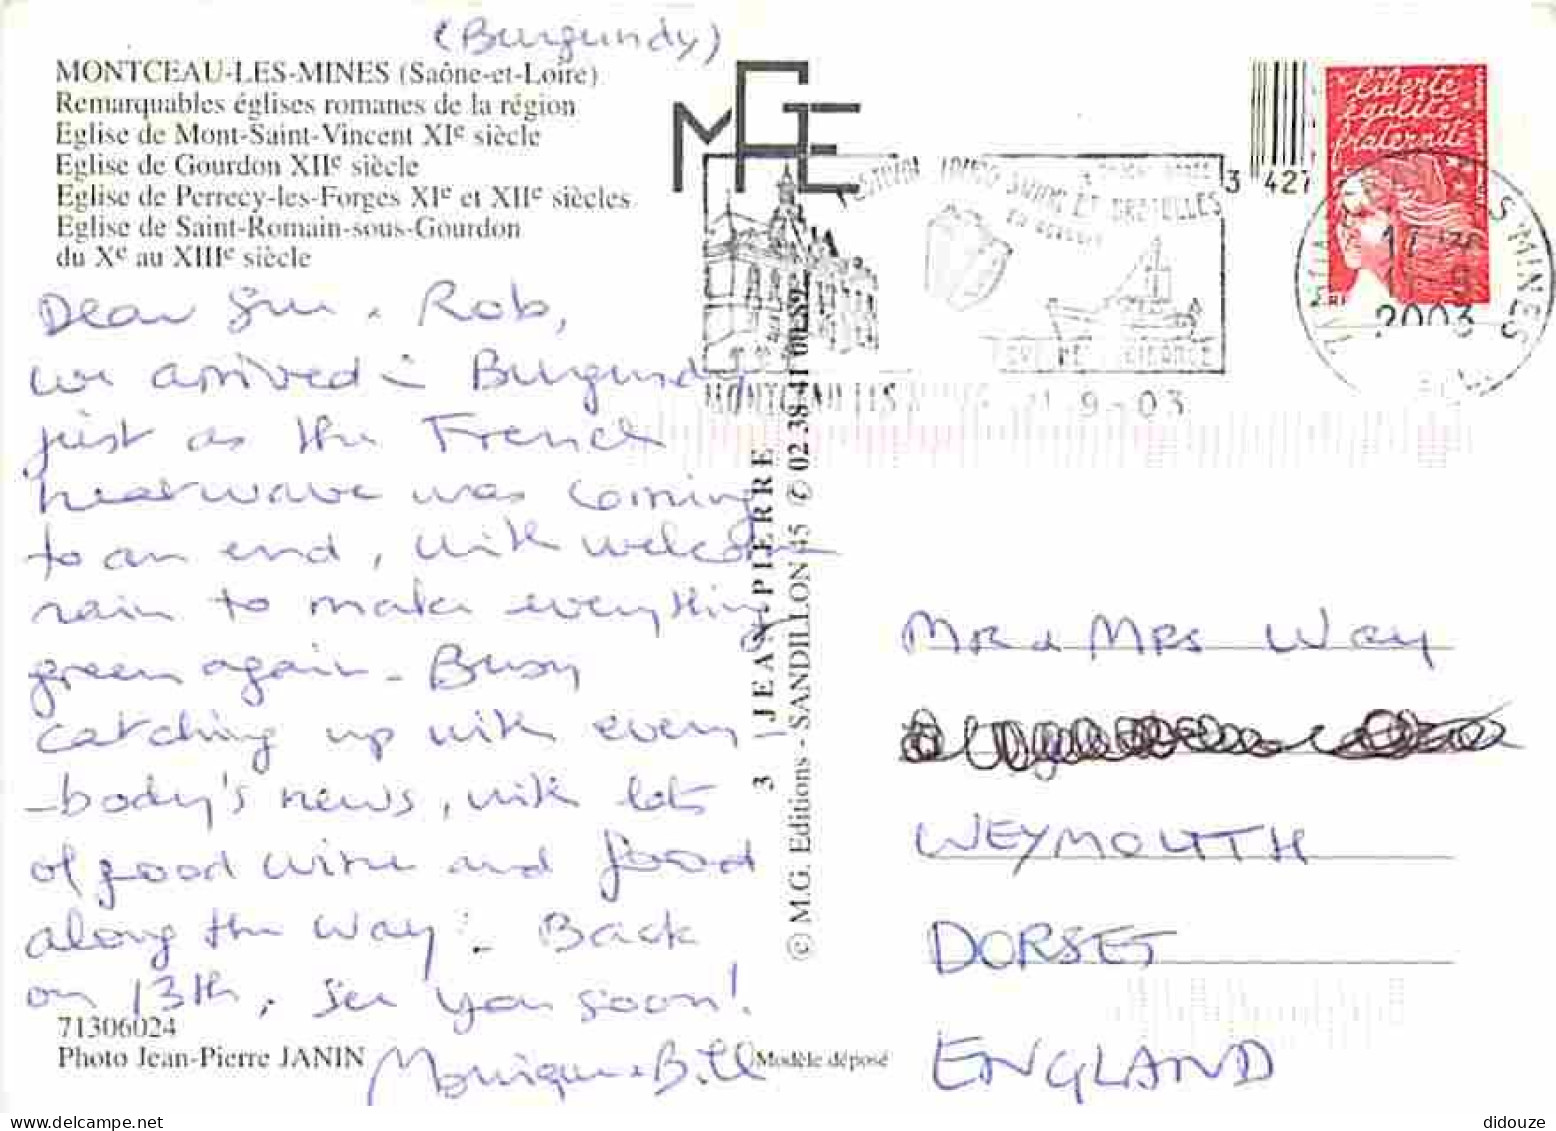 (Burgundy)
MONTCEAU-LES-MINES (Saône-et-Loire)
Remarquables églises romanes de la région
Eglise de Mont-Saint-Vincent XIe siècle
Eglise de Gourdon XIIe siècle
Eglise de Perrecy-les-Forges XIe et XIIe siècles
Eglise de Saint-Romain-sous-Gourdon
du Xe au XIIIe siècle
Dear Sue & Rob,
we arrived in Burgundy
just as the French
heatwave was coming
to an end, with welcome
rain to make everything
green again - Busy
catching up with every
-body's news, with lots
of good wine and food
along the way! Back
on 13th, see you soon!
Monique & Bill
71306024
Photo Jean-Pierre JANIN
Modèle déposé
3 JEAN PIERRE
© M.G. Editions - SANDILLON 45 ✆ 02 38 41 00 89
MAGE
SUDOKU ET
MONTCEAU LES MINES 11 9 - 03
3 427
liberté
égalité
fraternité
S/MINES
2003
MR & MRS Way
WEYMOUTH
DORSET
ENGLAND
didouze